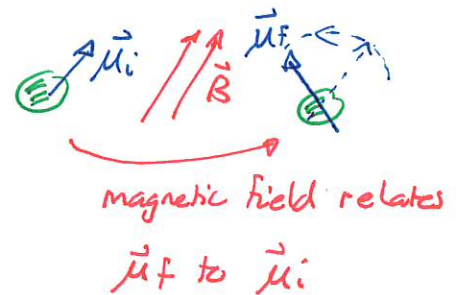 μ⃗i
B⃗
μ⃗f
magnetic field relates
μ⃗f to μ⃗i